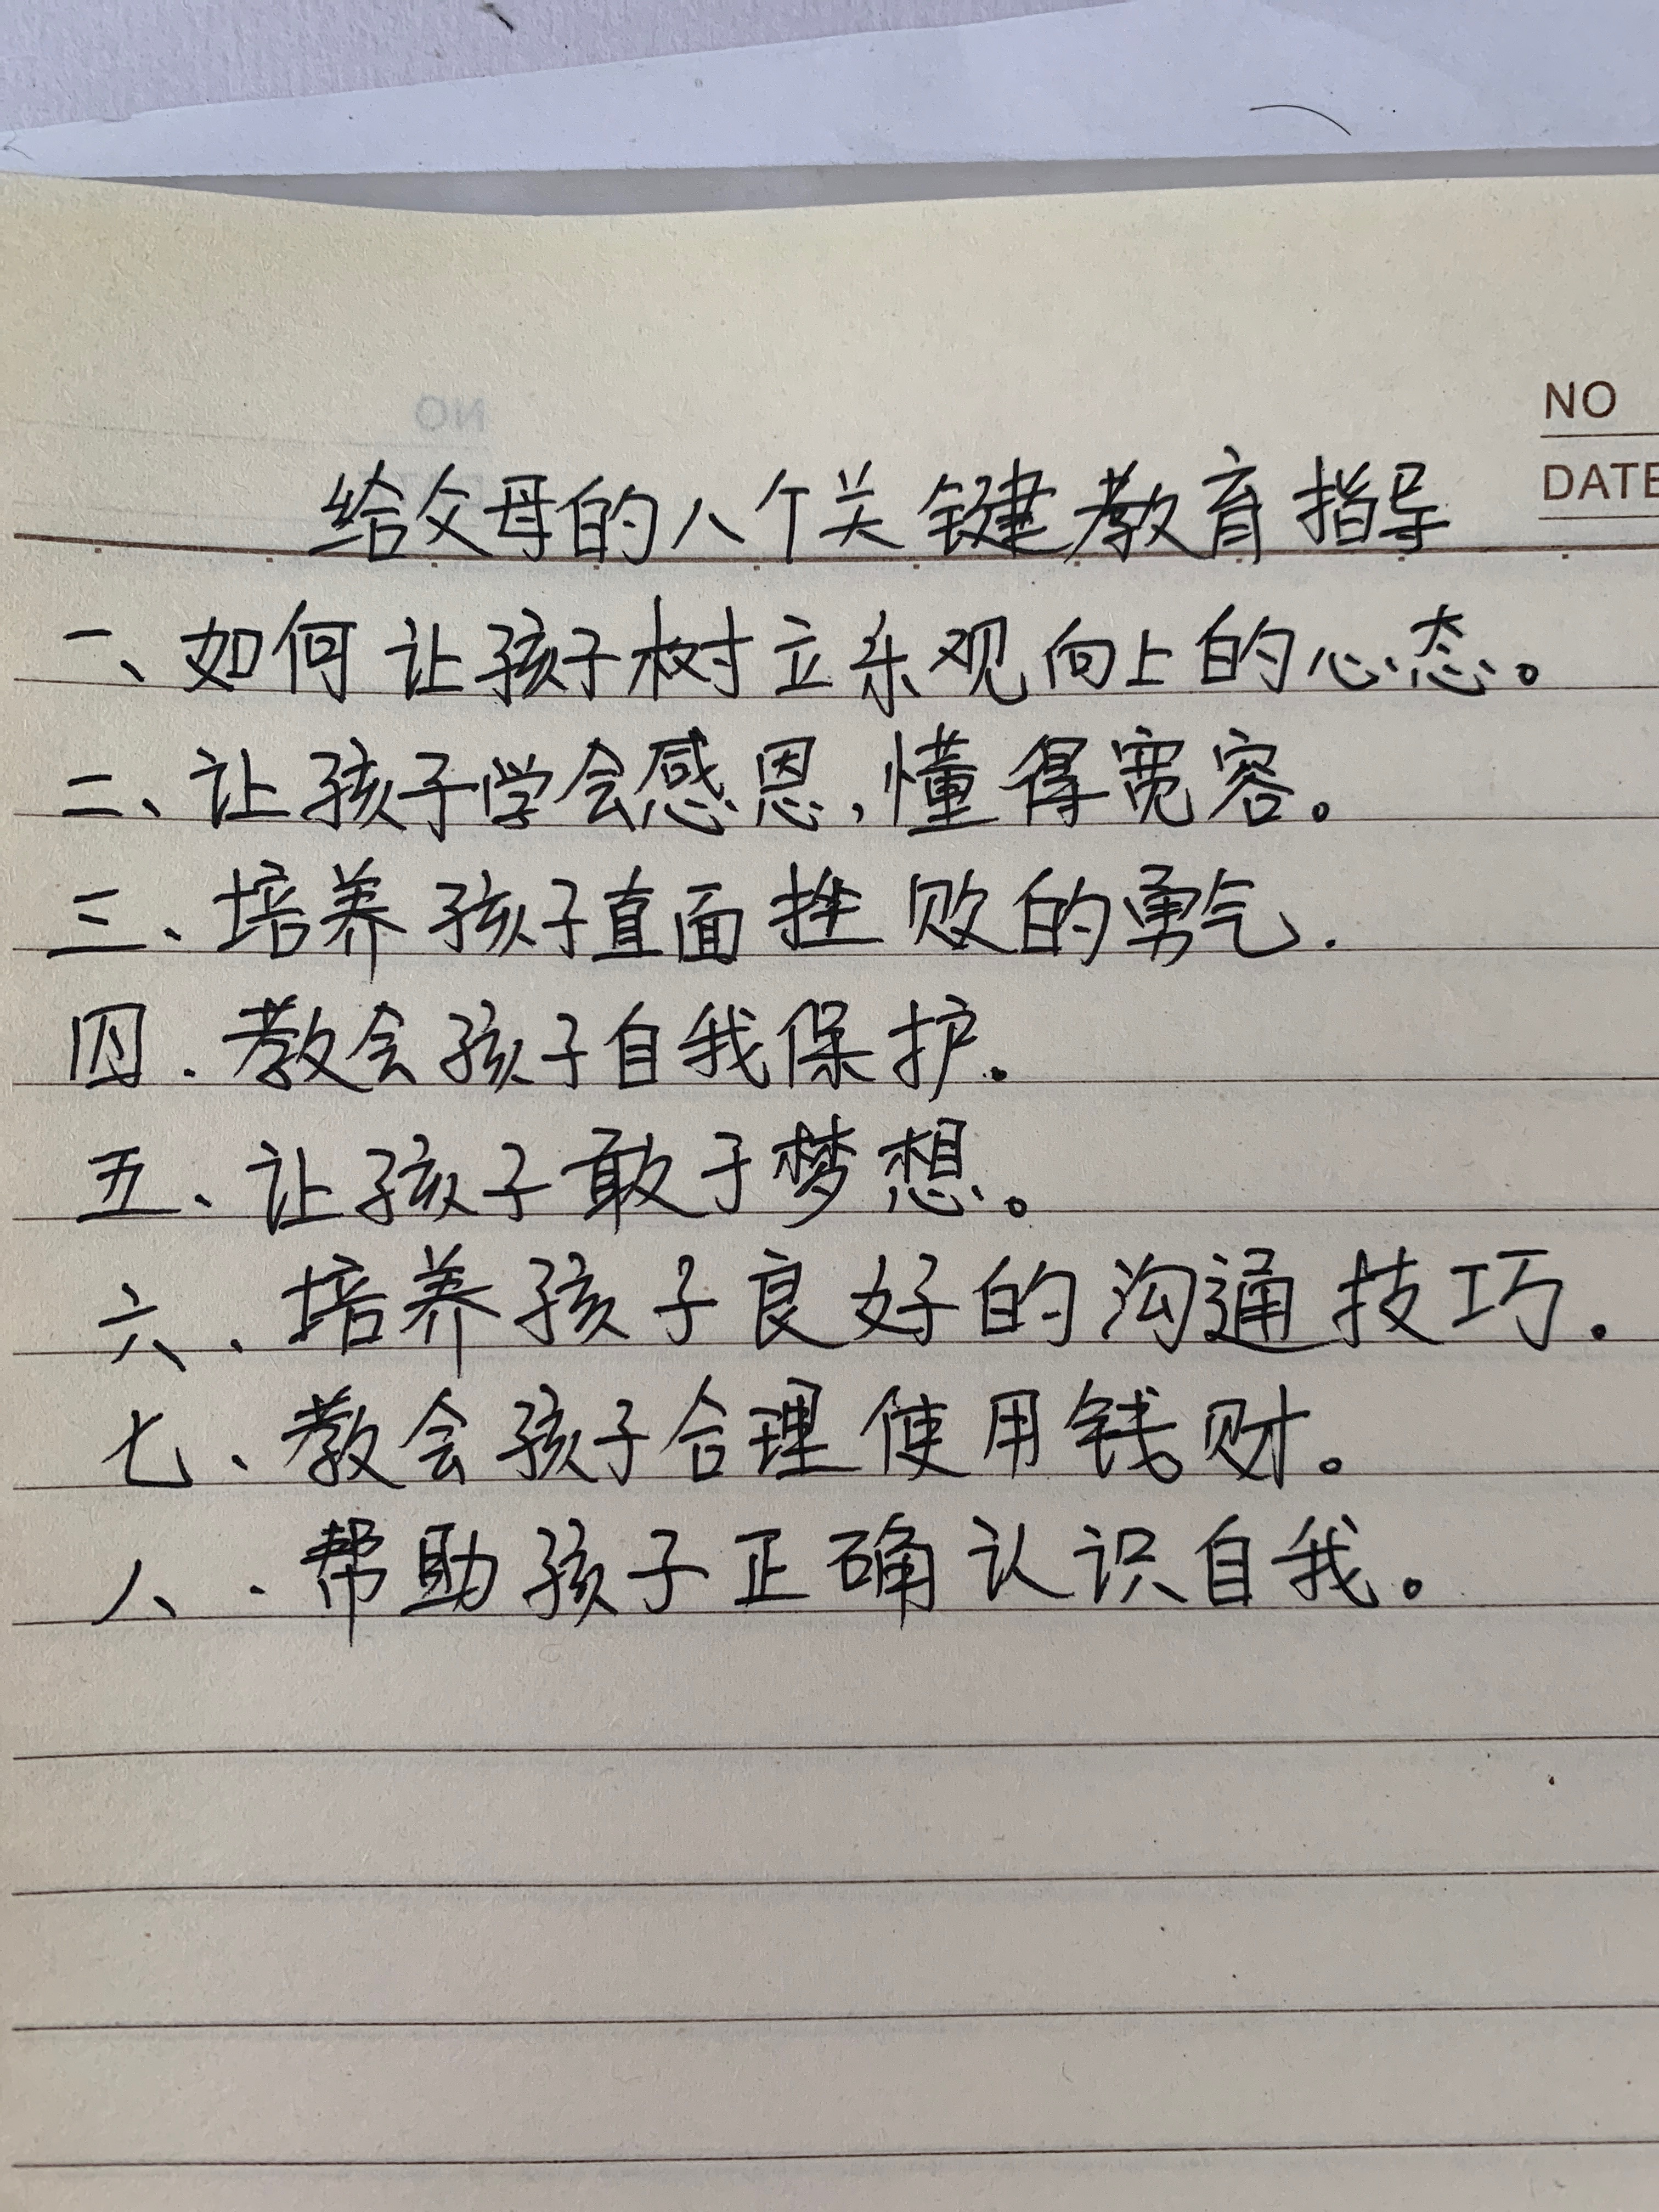 NO
DATE
给父母的八个关键教育指导
一、如何让孩子树立乐观向上的心态。
二、让孩子学会感恩,懂得宽容。
三、培养孩子直面挫败的勇气.
四.教会孩子自我保护.
五、让孩子敢于梦想。
六、培养孩子良好的沟通技巧.
七、教会孩子合理使用钱财。
八、帮助孩子正确认识自我。